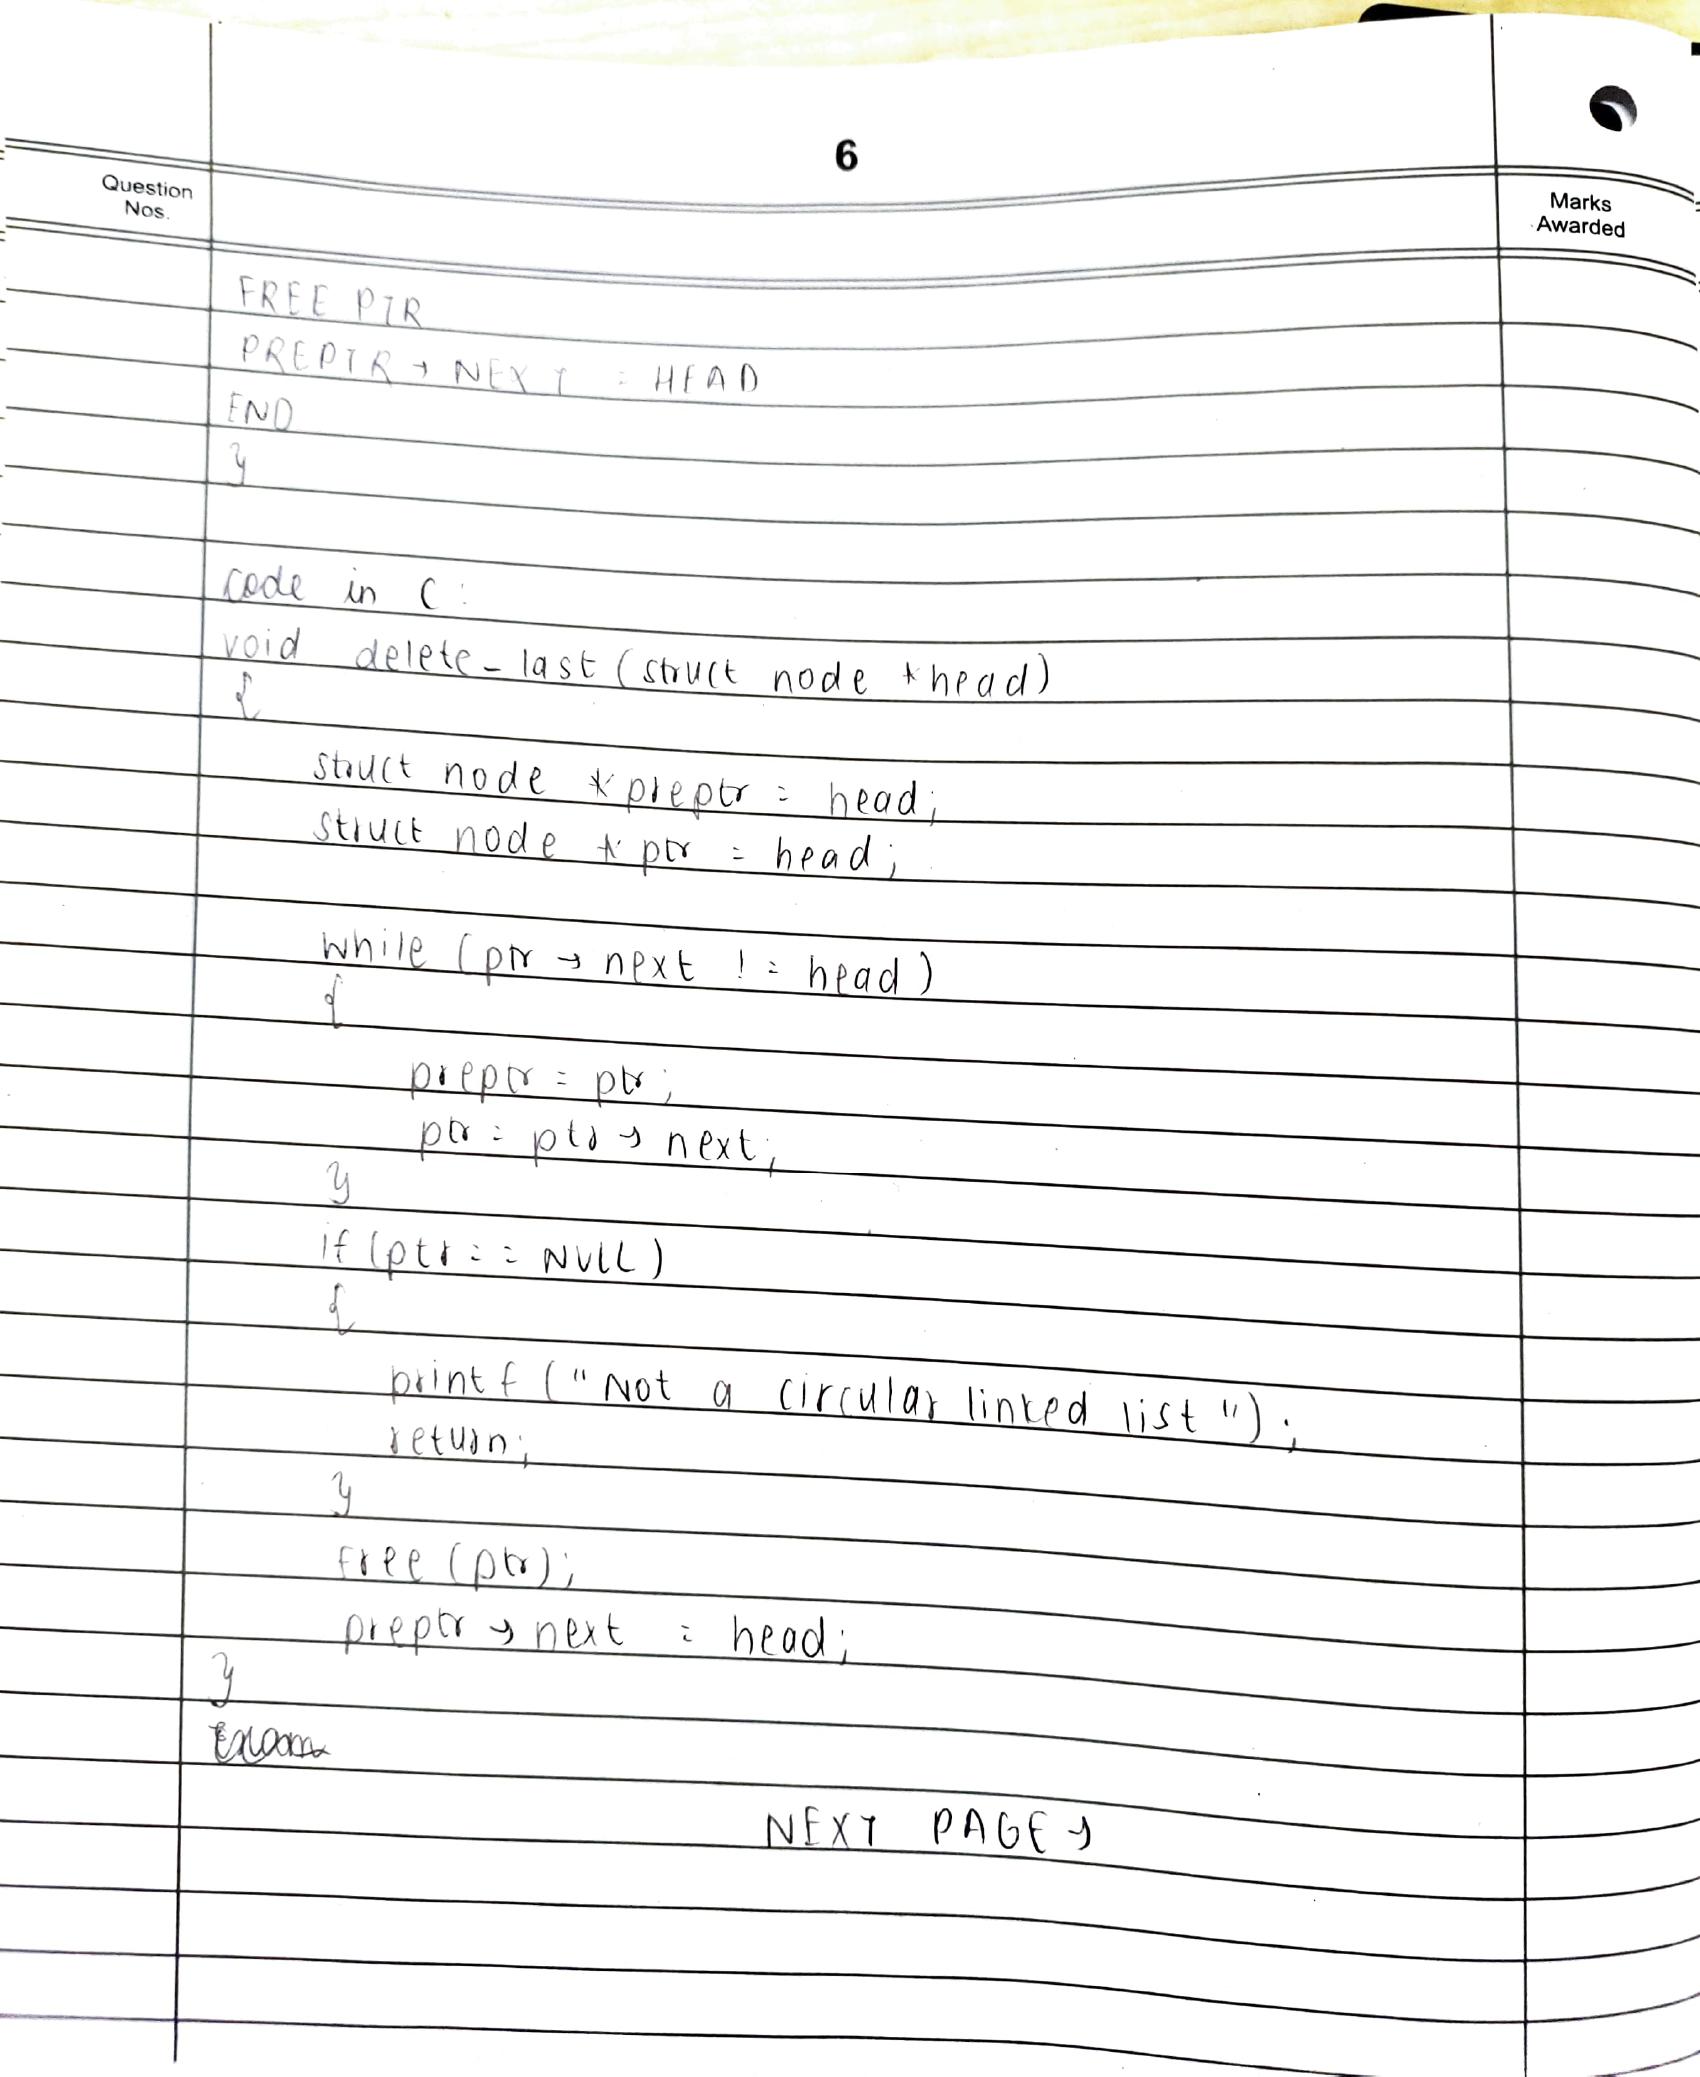 6
Question
Nos.
Marks
Awarded
FREE PTR
PREPTR → NEXT = HEAD
END
}
code in C:
void delete_last (struct node *head)
{
struct node *preptr = head;
struct node *ptr = head;
while (ptr → next != head)
{
preptr = ptr;
ptr = ptr → next;
}
if (ptr == NULL)
{
printf ("Not a circular linked list");
return;
}
free (ptr);
preptr → next = head;
}
NEXT PAGE →